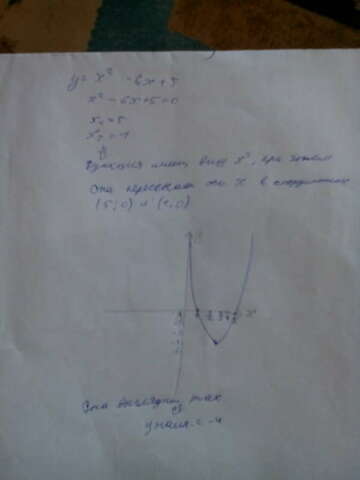 y = x² - 6x + 5
x² - 6x + 5 = 0
x₁ = 5
x₂ = 1
функция имеет вид x², при этом
она пересекает ось x в координатах
(5; 0) и (1; 0)
y
x
Она выглядит так
y наим. = -4